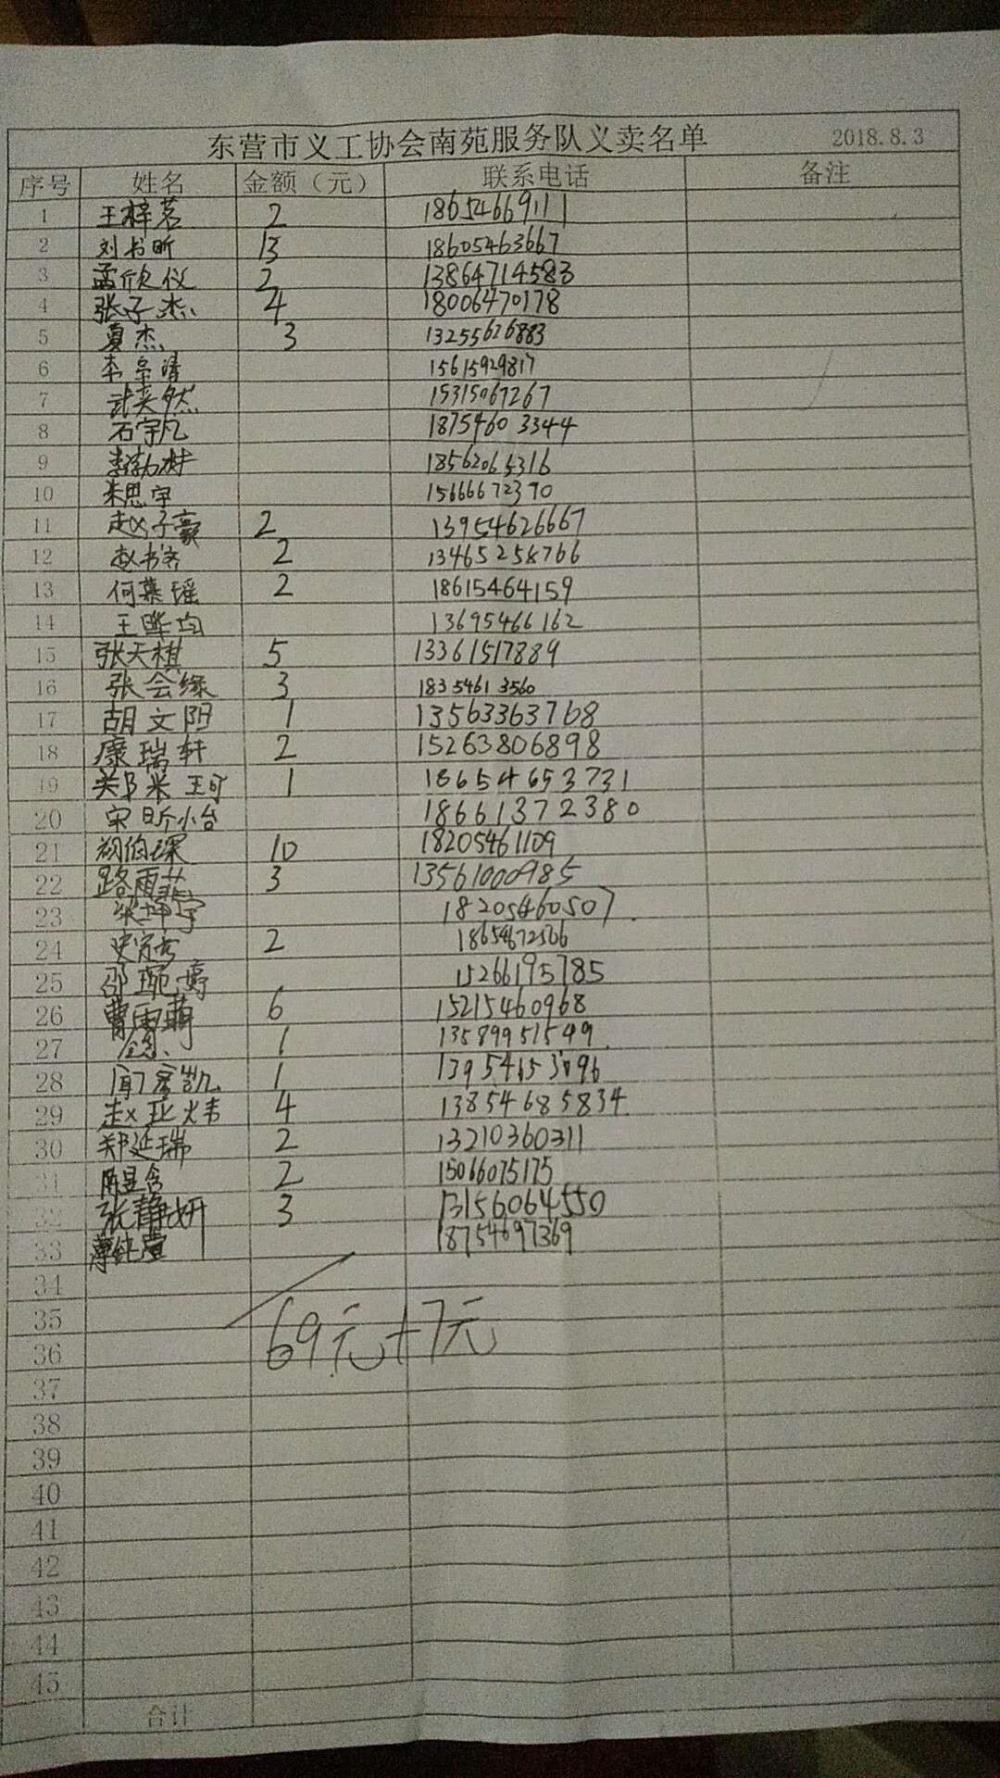 东营市义工协会南苑服务队义卖名单 2018.8.3
序号 姓名 金额（元） 联系电话 备注
1 王梓茗 2 18654669111
2 刘书昕 13 18605463667
3 孟欣仪 2 13864714583
4 张子杰 4 18006470178
5 夏杰 3 13255626883
6 15615929817
7 武奕然 15315067267
8 石宇凡 18754603344
9 李勃树 18562065316
10 朱思宇 15666672390
11 赵子豪 2 13954626667
12 赵书齐 2 13465258766
13 何慕瑶 2 18615464159
14 王晔均 13695466162
15 张天棋 5 13361517889
16 张会缘 3 18354613560
17 胡文阳 1 13563363768
18 康瑞轩 2 15263806898
19 郑米珂 1 18654653731
20 宋昕怡 18661372380
21 胡伯琛 10 18205461109
22 路雨菲 3 13561000985
23 张坤宇 18205460507
24 2 18654672566
25 邵琬婷 15266195785
26 曹雨萌 6 15215460968
27 1 13589951549
28 1 13954653096
29 赵亚炜 4 13854685834
30 郑延瑞 2 13210360311
31 陈昱含 2 15066075175
32 张静妍 3 13156064550
33 18754697369
34
35
36 69元+7元
37
38
39
40
41
42
43
44
45
合计